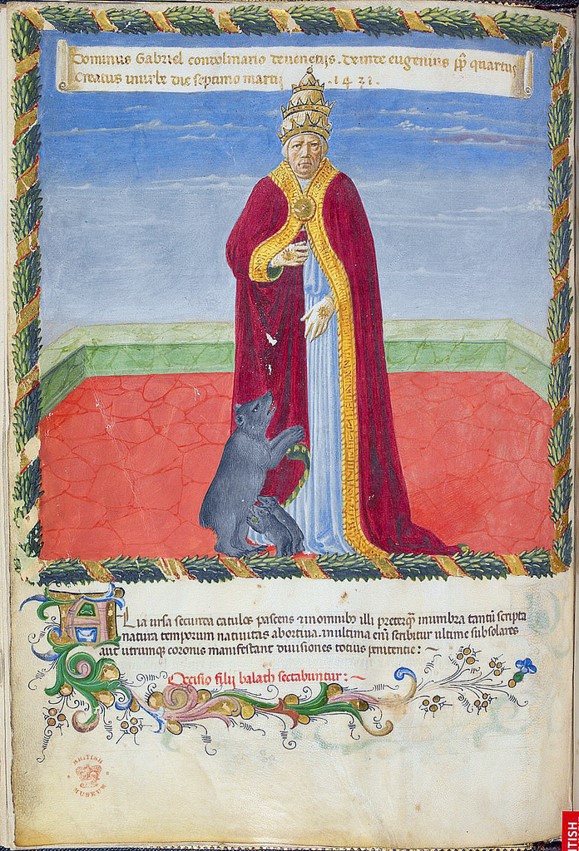 Dominus Gabriel condolmario de venetiis. deinde eugenius pp̄ quartus
Creatus in urbe die septimo martij .1431.
Alia ursa secunda catulos pascens ⁊ in omnibꝰ illi preterqꝫ in umbra tantū scripta
natura temporum nativitas abortiva. in ultima enī scribitur ultime sub solares
aut utriusqꝫ coronis manifestant divisiones totius penitentie: ~
Occisio filii balach sectabuntur: ~
BRITISH MUSEUM
TISH